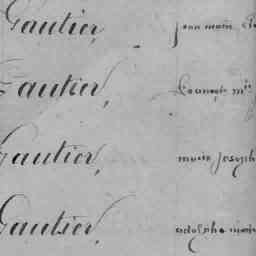 Gautier, jean marie
Gautier, françois m.ie
Gautier, marie joseph
Gautier, adolphe marie